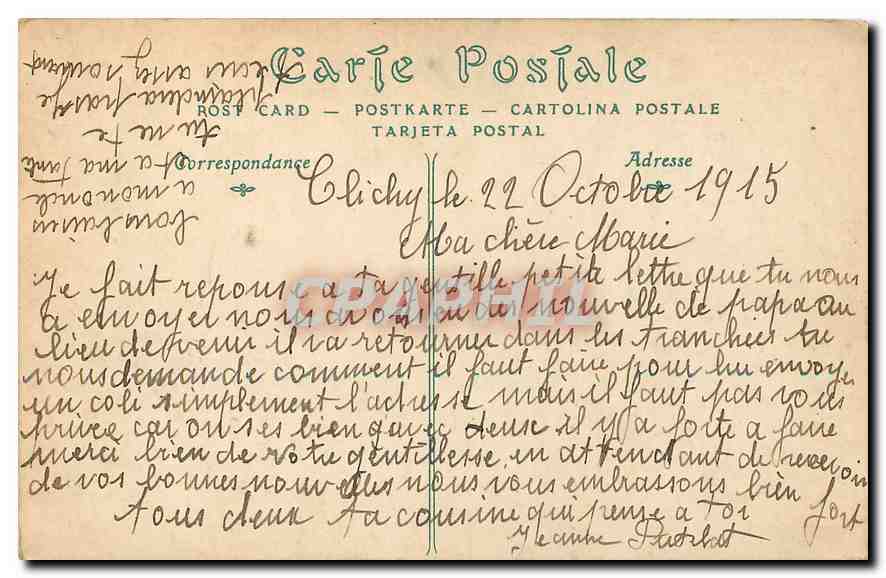 Carte Postale
POST CARD — POSTKARTE — CARTOLINA POSTALE
TARJETA POSTAL
Correspondance
Adresse
Clichy le 22 Octobre 1915
Ma chère Marie
Je fait reponse a ta gentille petite lettre que tu nous
a envoyer nous avons eu des nouvelle de papa au
lieu de venir il va retourner dans les tranchees tu
nous demande comment il faut faire pour lui envoyer
un coli simplement l'adresse mais il faut pas vous
privée car on ses bien qavec deuse il y a forte a faire
merci bien de votre gentillesse en attendant de recevoir
de vos bonnes nouvelles nous vous embrassons bien fort
tous deux ta cousine qui pense a toi
Jeanne
bons baisers
a mon oncle
et a ma tante
tu ne te
plaindra pas je
assez souvent
CPARAMA